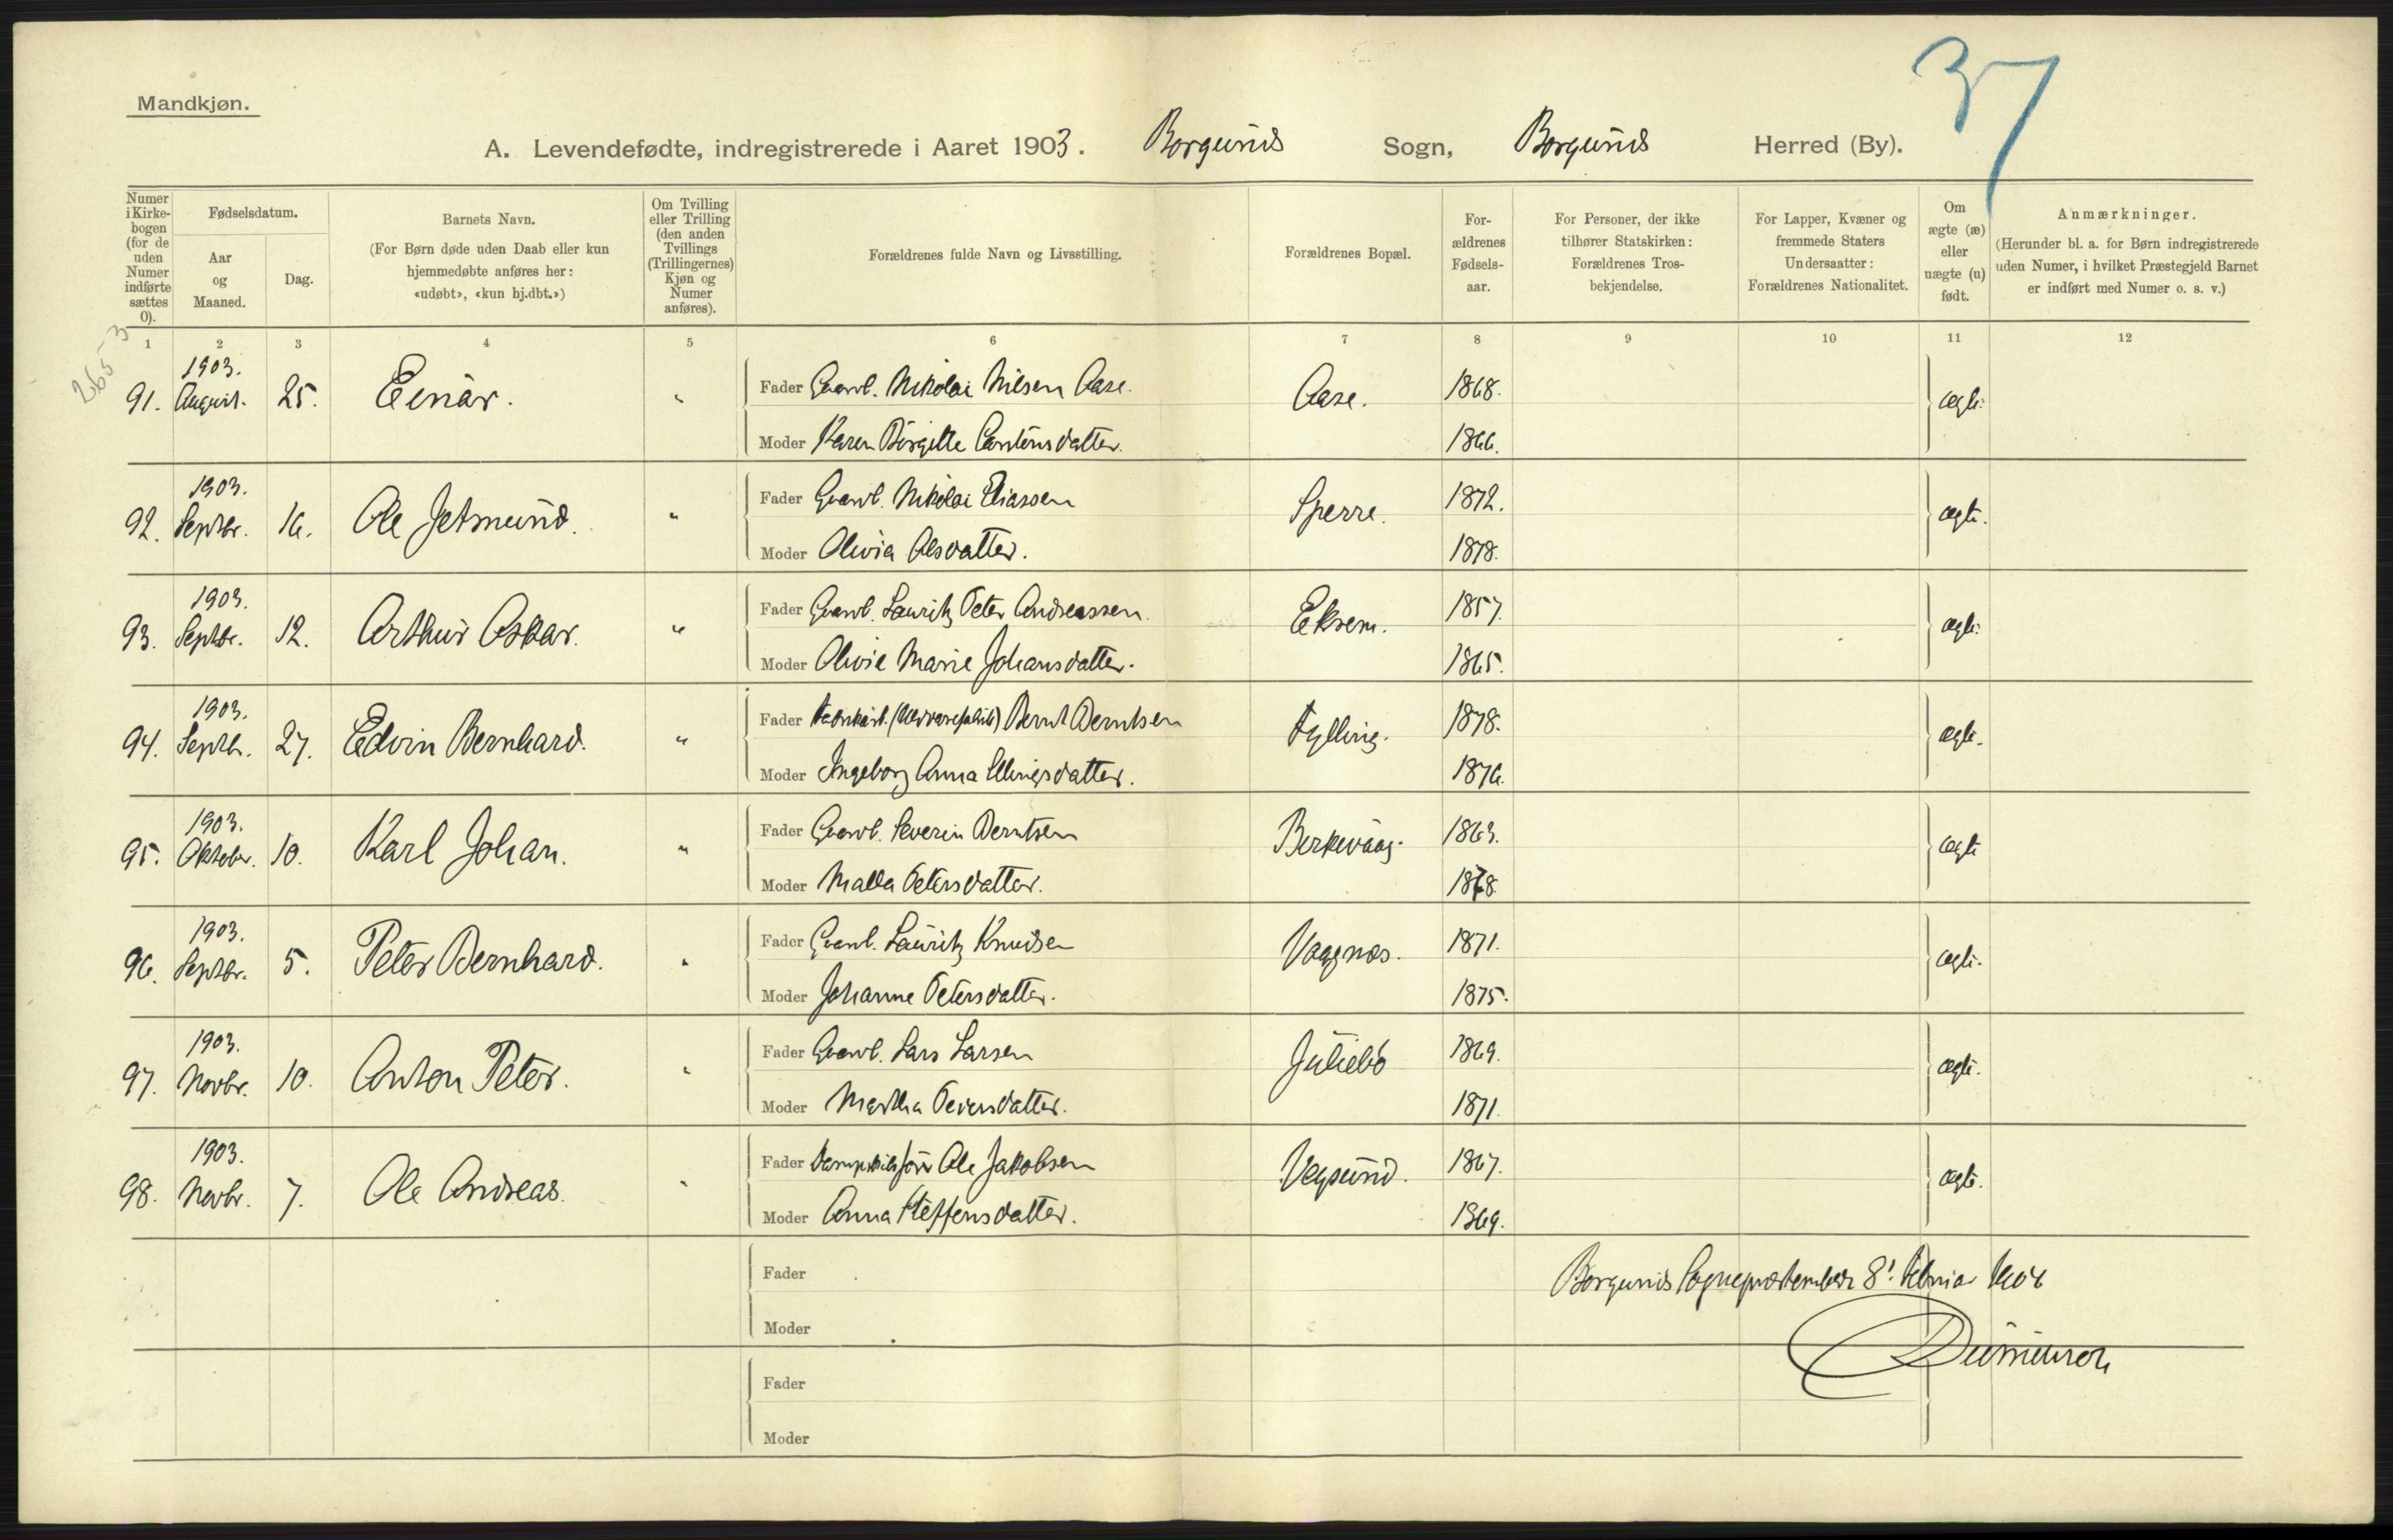 37
Mandkjøn.
A. Levendefødte, indregistrerede i Aaret 1903. Borgund Sogn, Borgund Herred (By).
Numer i Kirkebogen (for de uden Numer indførte sættes 0).
Fødselsdatum.
Aar og Maaned.
Dag.
Barnets Navn.
(For Børn døde uden Daab eller kun hjemmedøbte anføres her: «udøbt», «kun hj.dbt.»)
Om Tvilling eller Trilling (den anden Tvillings (Trillingernes) Kjøn og Numer anføres).
Forældrenes fulde Navn og Livsstilling.
Forældrenes Bopæl.
For-ældrenes Fødsels-aar.
For Personer, der ikke tilhører Statskirken: Forældrenes Tros-bekjendelse.
For Lapper, Kvæner og fremmede Staters Undersaatter: Forældrenes Nationalitet.
Om ægte (æ) eller uægte (u) født.
Anmærkninger.
(Herunder bl. a. for Børn indregistrerede uden Numer, i hvilket Præstegjeld Barnet er indført med Numer o. s. v.)
1 2 3 4 5 6 7 8 9 10 11 12
2653
91. 1903. August. 25. Einar. " Fader Gaarbr. Nikolai Nilsen Aase. Aase. 1868. ægte.
Moder Karen Birgitte Carstensdatter. 1866.
92. 1903. Septbr. 16. Ole Jetmund. " Fader Gaarbr. Nikolai Eliassen Sperre. 1872. ægte.
Moder Olivia Olsdatter. 1878.
93. 1903. Septbr. 12. Arthur Oskar. " Fader Gaarbr. Lauritz Peter Andreassen. Eksem. 1857. ægte.
Moder Olivie Marie Johansdatter. 1865.
94. 1903. Septbr. 27. Edvin Bernhard. " Fader Fabrikarb. (Uldvarefabrik) Bernt Berntsen Fylling. 1878. ægte.
Moder Ingeborg Anna Ellingsdatter. 1876.
95. 1903. Oktober. 10. Karl Johan. " Fader Gaarbr. Severin Berntsen Berkevaag. 1863. ægte
Moder Malla Petersdatter. 1878.
96. 1903. Septbr. 5. Peter Bernhard. " Fader Gaarbr. Lauritz Knudsen Vaagnæs. 1871. ægte.
Moder Johanne Petersdatter. 1875.
97. 1903. Novbr. 10. Anton Peter. " Fader Gaarbr. Lars Larsen Juliebø 1869. ægte.
Moder Martha Pedersdatter. 1871.
98. 1903. Novbr. 7. Ole Andreas. " Fader Dampskibsfører Ole Jakobsen Vegsund. 1867. ægte.
Moder Anna Steffensdatter. 1869.
Fader
Moder
Fader
Moder
Borgunds Sognepræstembede 8. Februar 1904